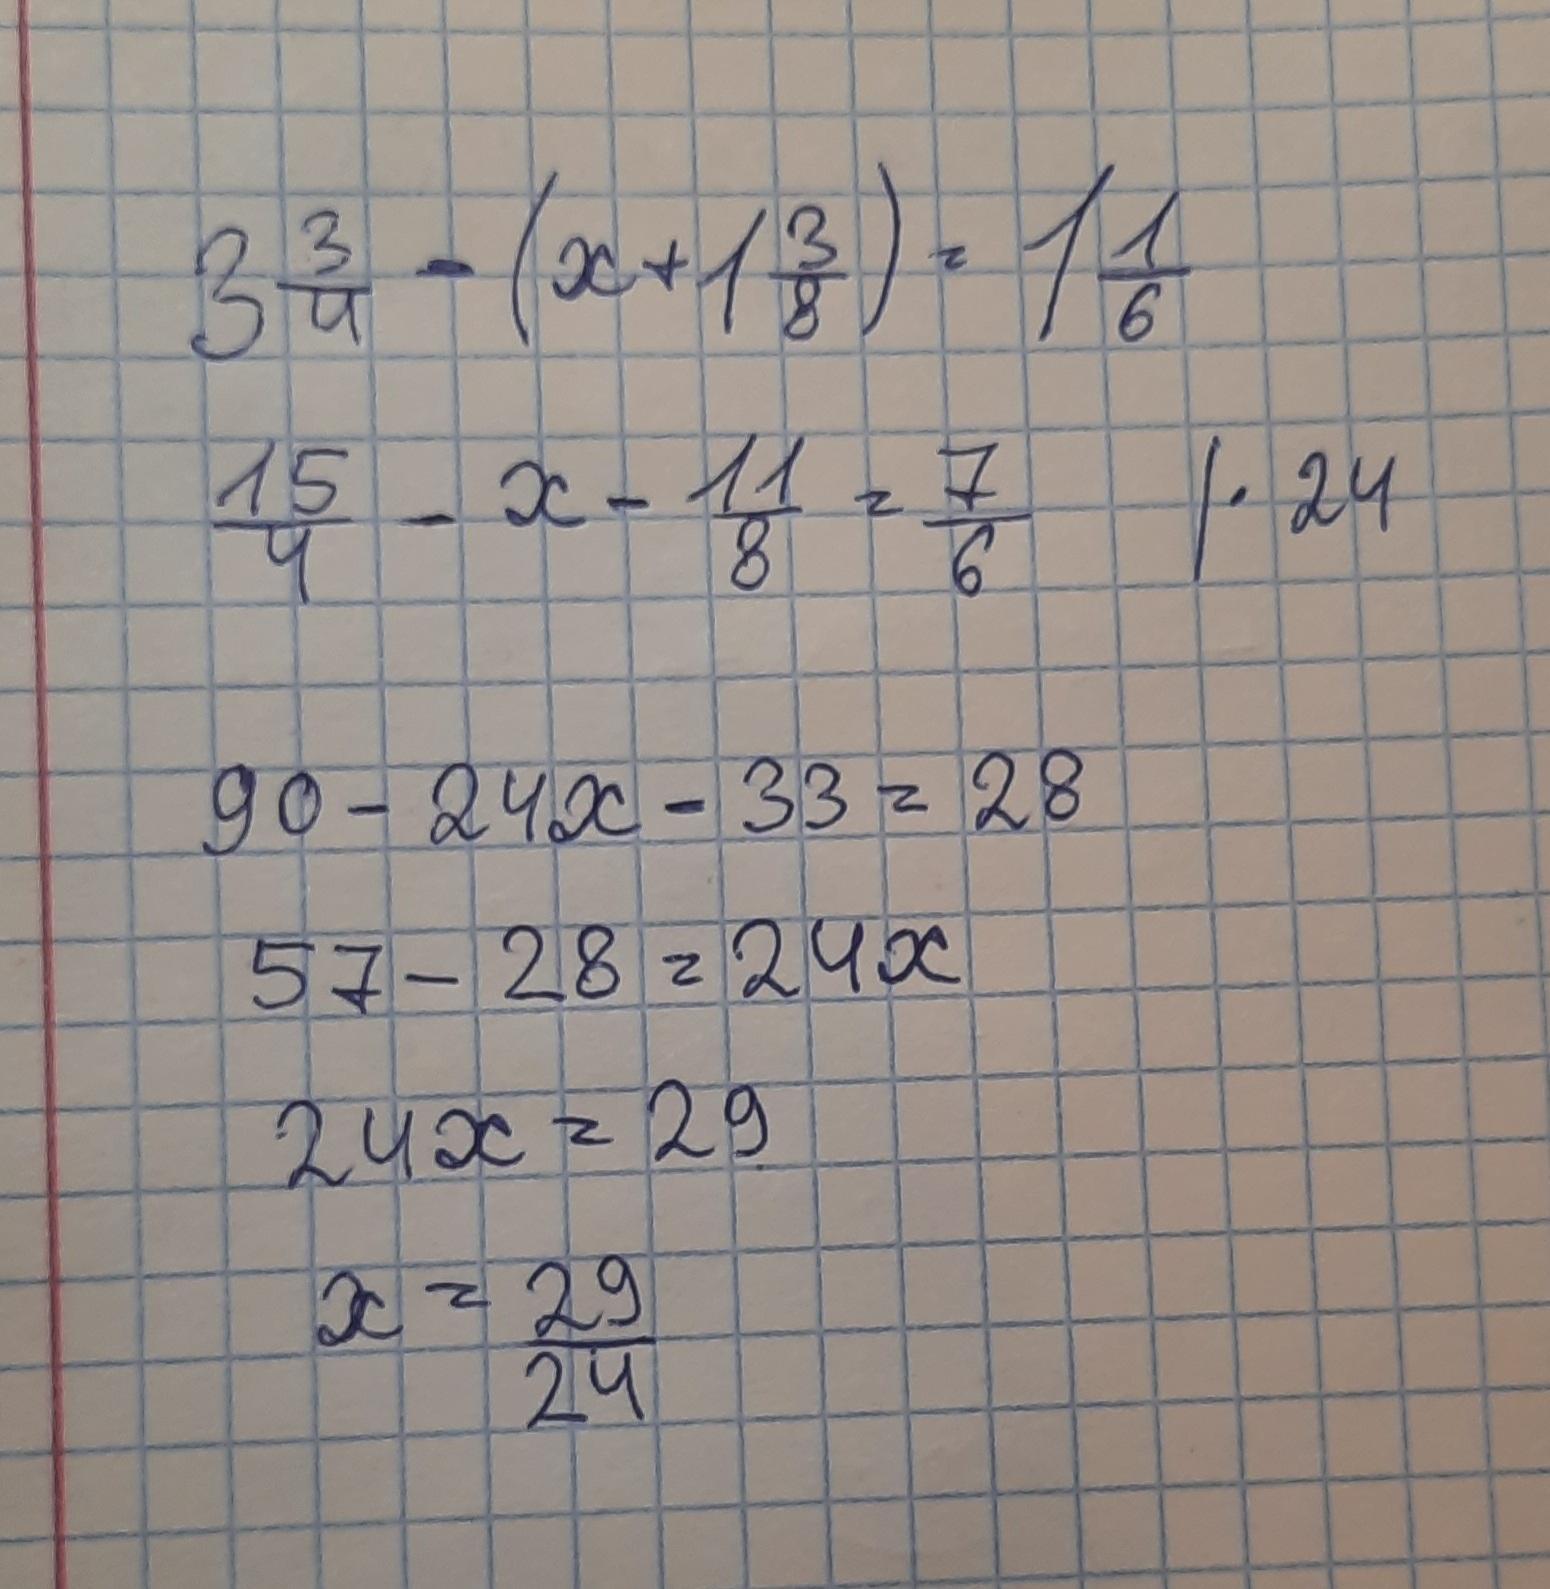 3 3/4 - (x + 1 3/8) = 1 1/6
15/4 - x - 11/8 = 7/6 |· 24
90 - 24x - 33 = 28
57 - 28 = 24x
24x = 29
x = 29/24